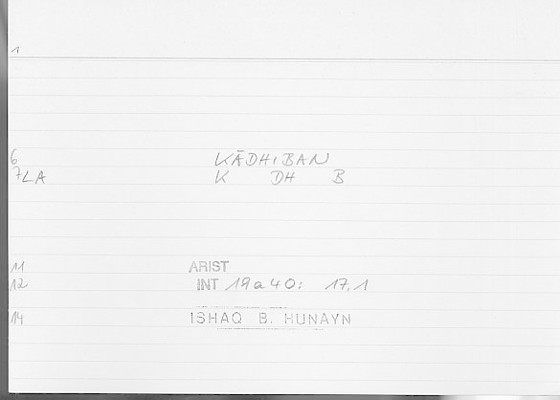 1
6 KĀDHIBAN
7LA K DH B
11 ARIST
12 INT 19a40: 17.1
14 ISHAQ B. HUNAYN